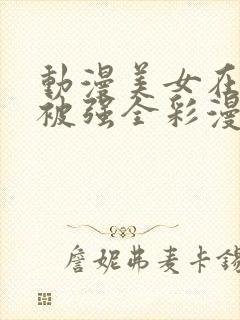 動漫美女在
被强全彩漫
詹妮弗麦卡锡